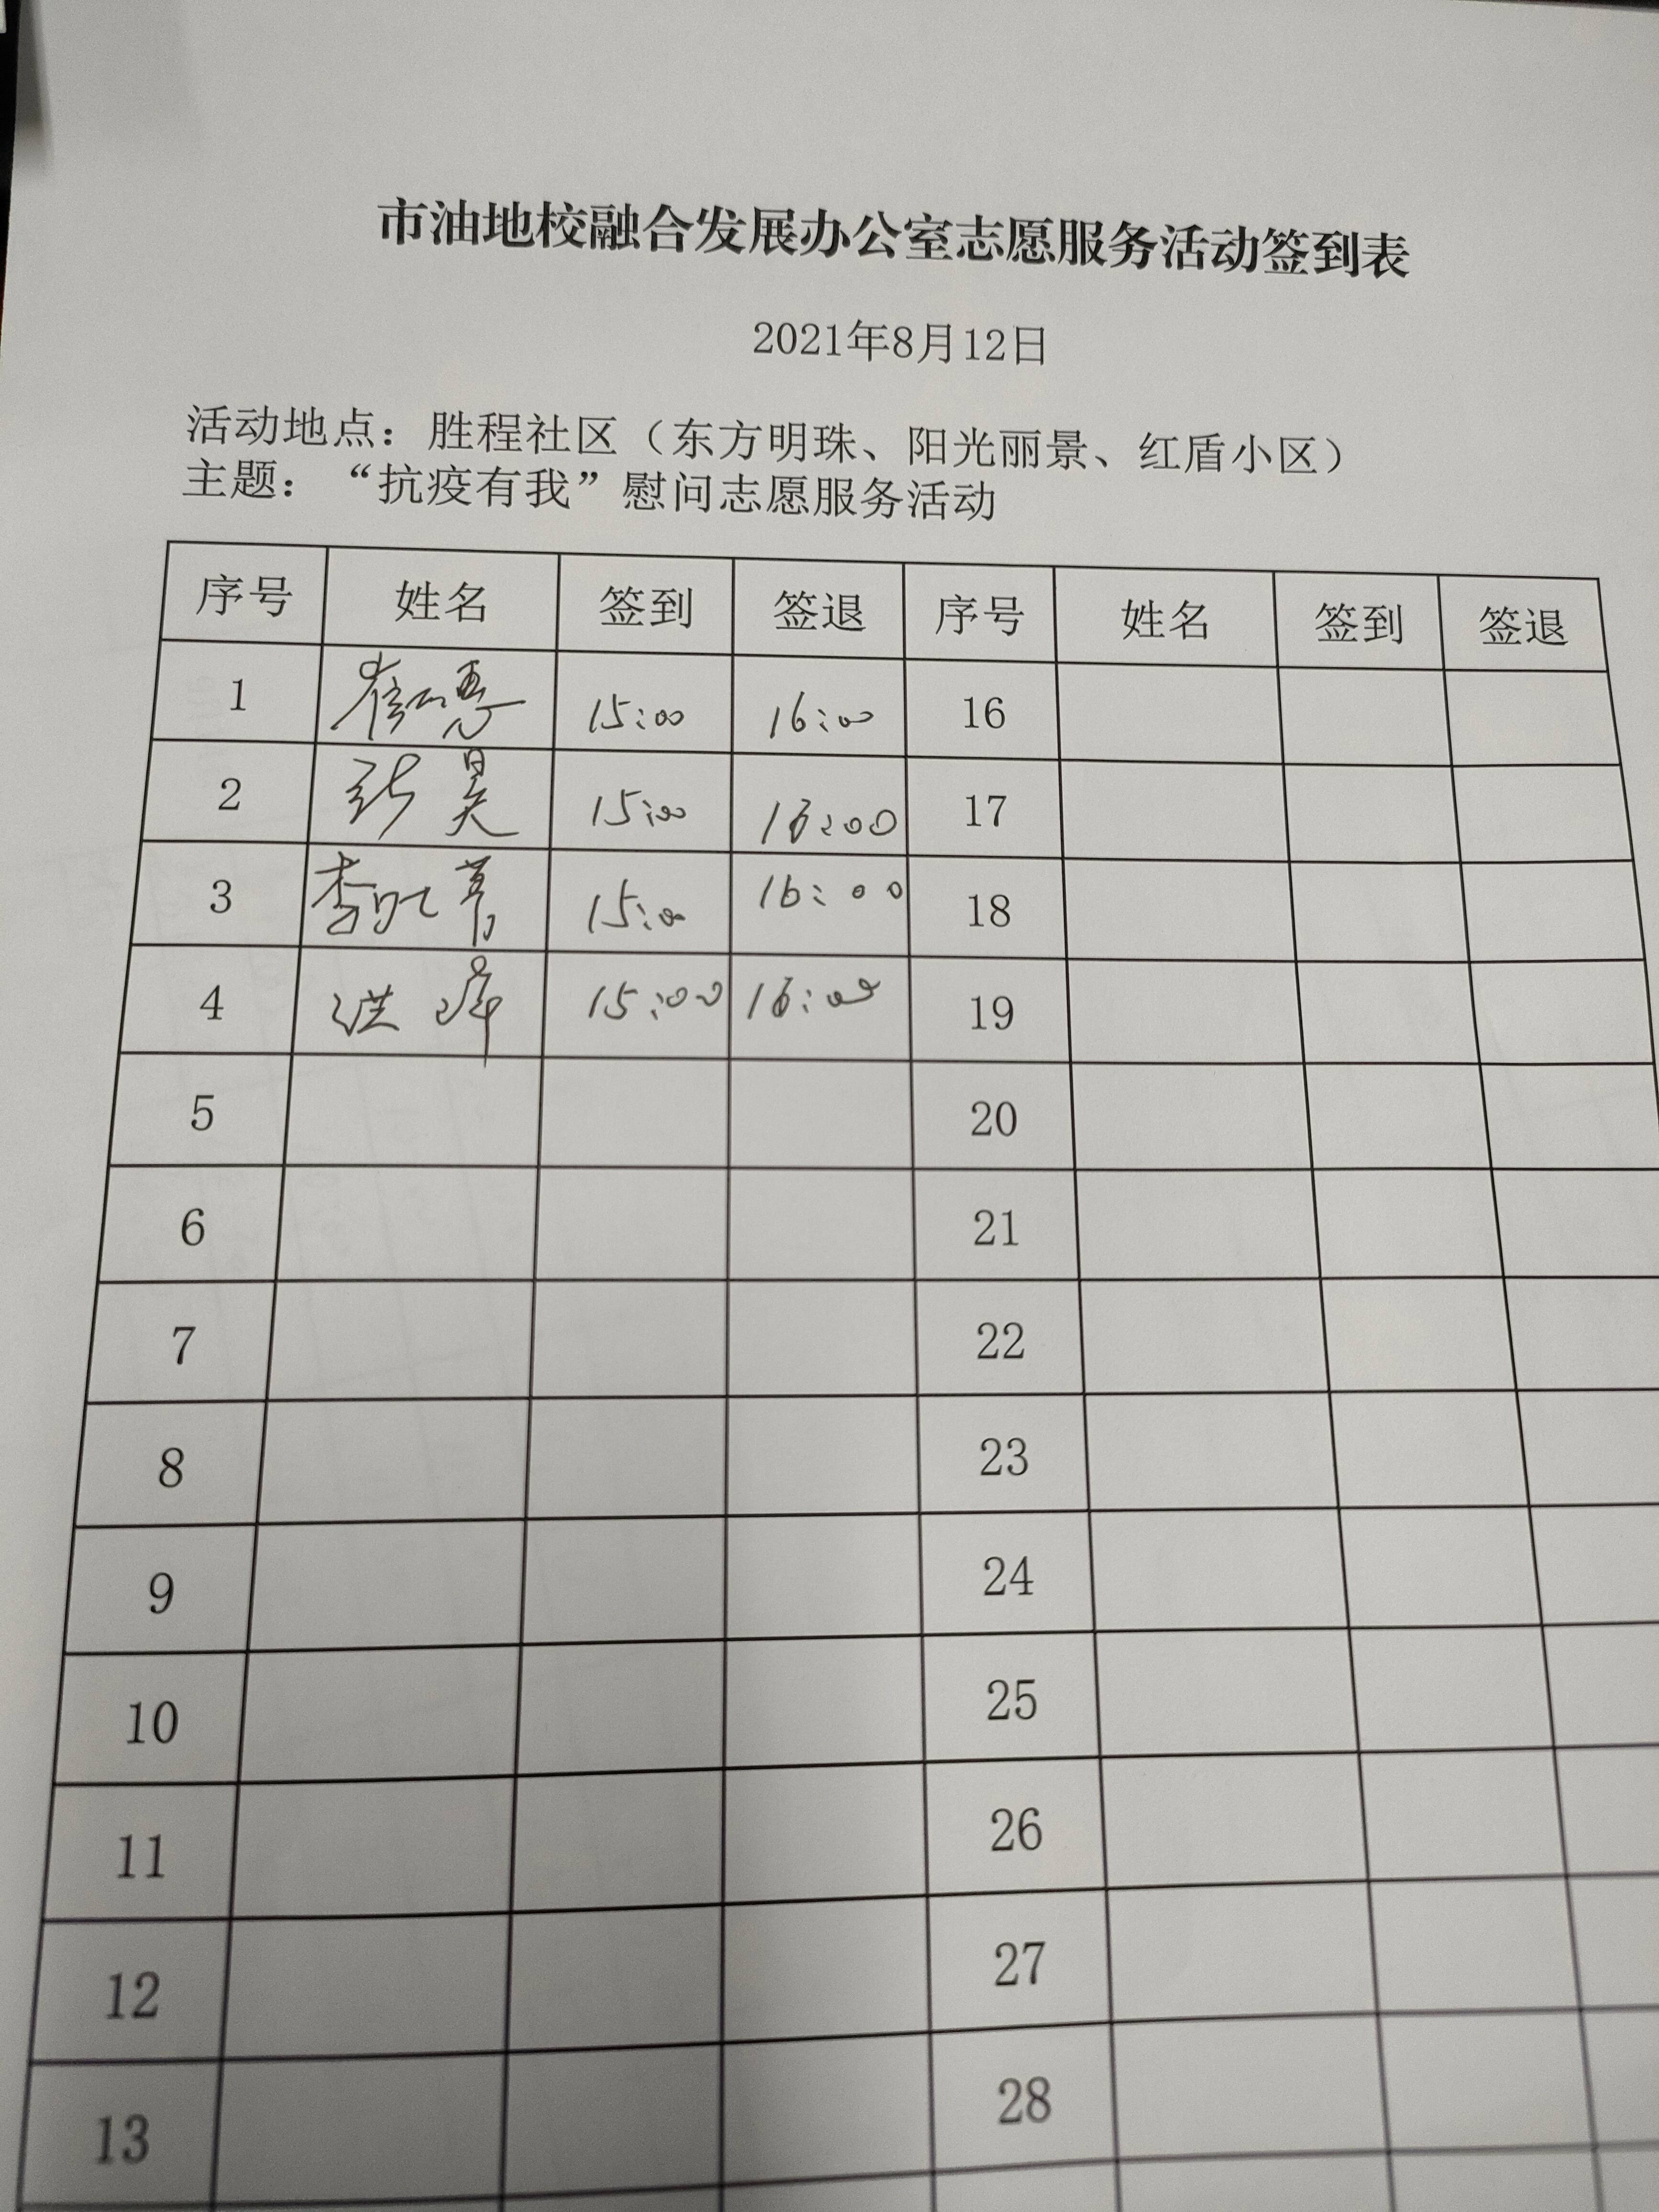 市油地校融合发展办公室志愿服务活动签到表
2021年8月12日
活动地点：胜程社区（东方明珠、阳光丽景、红盾小区）
主题：“抗疫有我”慰问志愿服务活动
序号 姓名 签到 签退 序号 姓名 签到 签退
1 15:00 16:00 16
2 张昊 15:00 16:00 17
3 李 15:00 16:00 18
4 洪 15:00 16:00 19
5 20
6 21
7 22
8 23
9 24
10 25
11 26
12 27
13 28